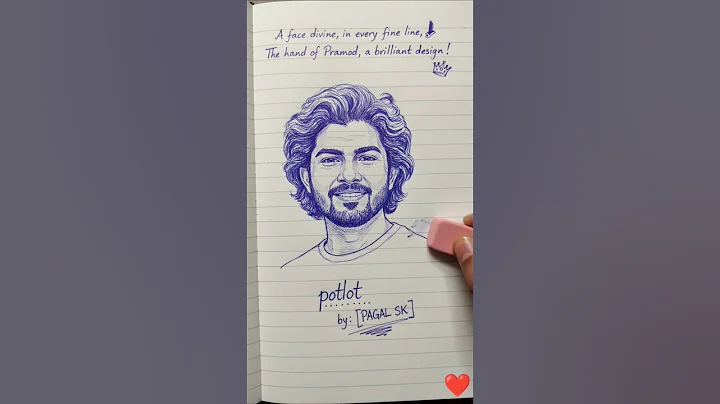 A face divine, in every fine line,
The hand of Pramod, a brilliant design!
potlot
by: [PAGAL SK]